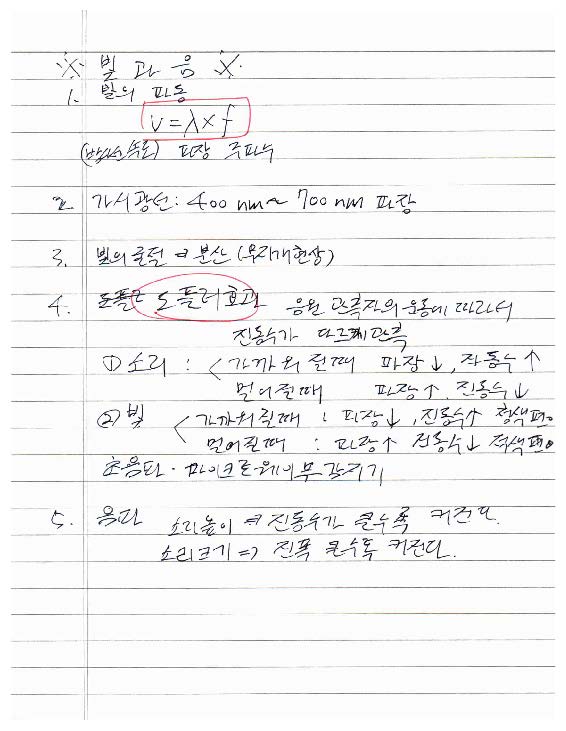 ※ 빛 과 음 ※
1. 빛의 파동
v = λ × f
파장 주파수
2. 가시광선 : 400 nm ~ 700 nm 파장
3. 빛의 굴절 ⇒ 분산 (무지개현상)
4. 도플러효과 음원 관측자의 운동에 따라서
진동수가 다르게 관측
① 소리 : < 가까워질때 파장↓, 진동수↑
멀어질때 파장↑, 진동수↓
② 빛 < 가까워질때 : 파장↓, 진동수↑ 청색편이
멀어질때 : 파장↑ 진동수↓ 적색편이
초음파 · 마이크로웨이브 감지기
5. 음파 소리높이 ⇒ 진동수가 클수록 커진다.
소리크기 ⇒ 진폭 클수록 커진다.